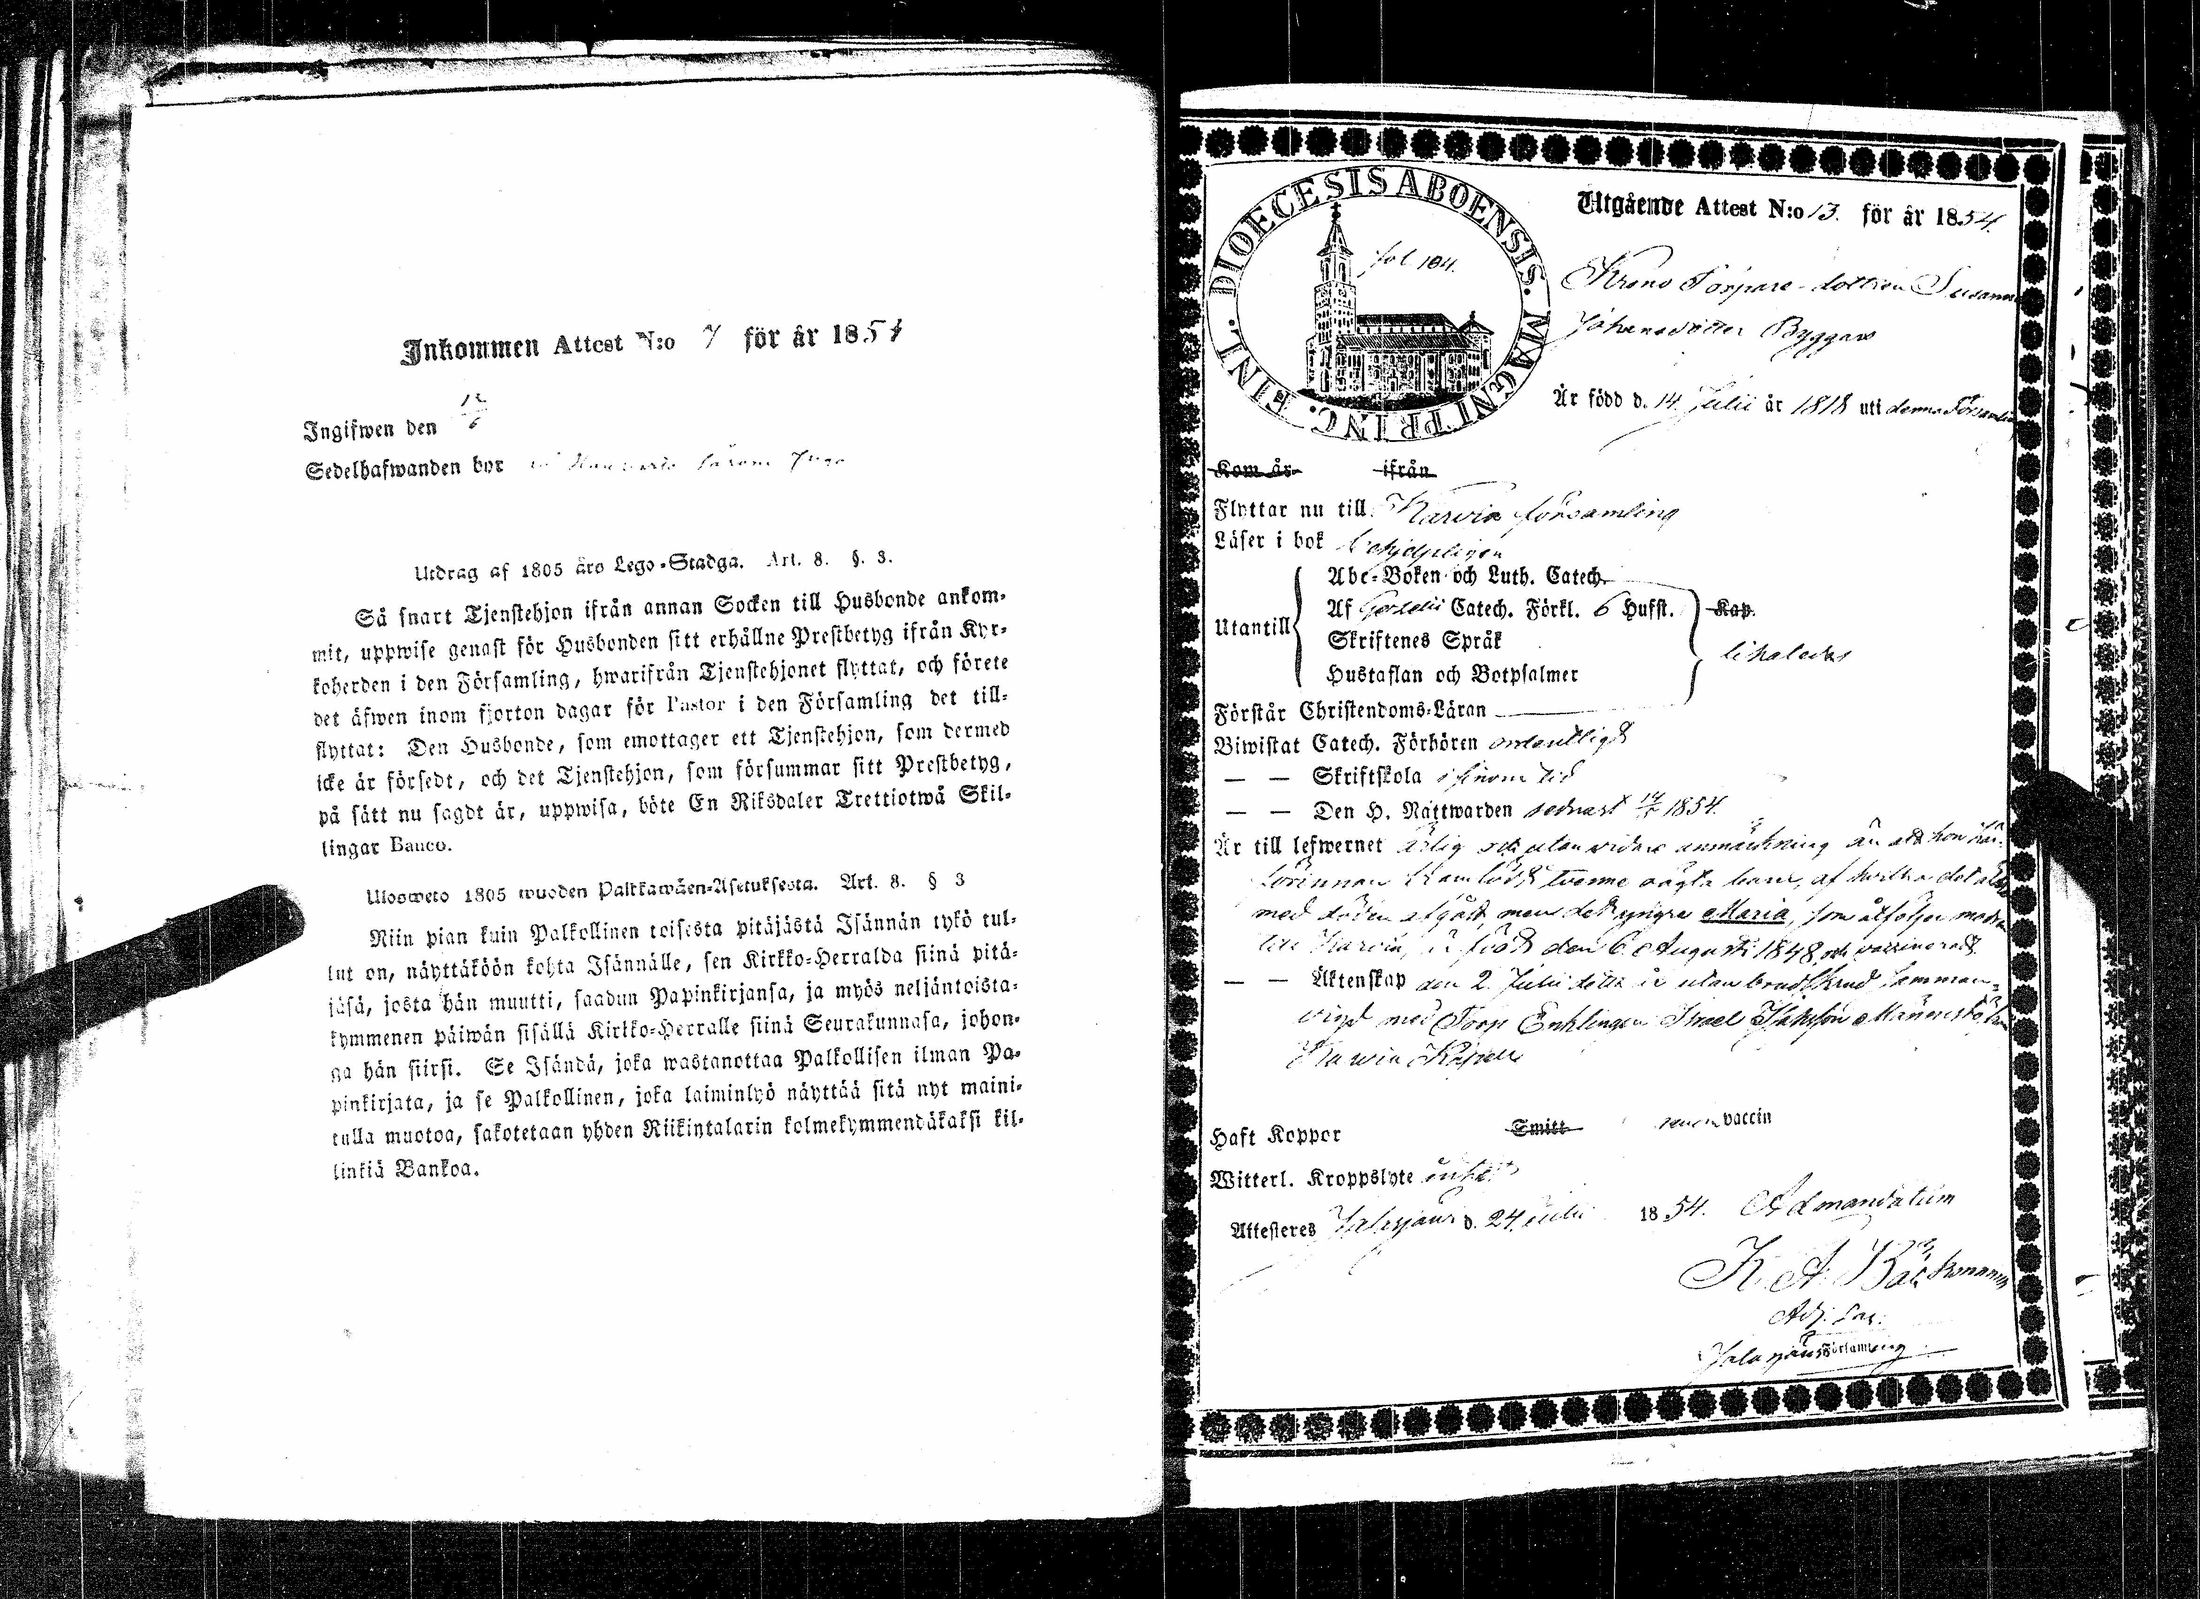 Inkommen Attest N:o 7 för år 1854
Ingifwen den 12/6
Sedelhafwanden bor
Utdrag af 1805 års Lego-Stadga. Art. 8. §. 3.
Så snart Tjenstehjon ifrån annan Socken till Husbonde ankom-
mit, uppwise genast för Husbonden sitt erhållne Prestbetyg ifrån Kyr-
koherden i den Församling, hwarifrån Tjenstehjonet flyttat, och förete
det äfwen inom fjorton dagar för Pastor i den Församling det till-
flyttat: Den Husbonde, som emottager ett Tjenstehjon, som dermed
icke är försedt, och det Tjenstehjon, som försummar sitt Prestbetyg,
på sätt nu sagdt är, uppwisa, böte En Riksdaler Trettiotwå Skil-
lingar Banco.
Ulosweto 1805 wuoden Palkkawäen-Asetuksesta. Art. 8. § 3
Niin pian kuin Palkollinen toisesta pitäjästä Isännän tykö tul-
lut on, näyttäköön kohta Isännälle, sen Kirkko-Herralda siinä pitä-
jäsä, josta hän muutti, saadun Papinkirjansa, ja myös neljäntoista-
kymmenen päiwän sisällä Kirkko-Herralle siinä Seurakunnasa, johon-
ga hän siirsi. Se Isändä, joka wastanottaa Palkollisen ilman Pa-
pinkirjata, ja se Palkollinen, joka laiminlyö näyttää sitä nyt maini-
tulla muotoa, sakotetaan yhden Riikintalarin kolmekymmendäkaksi kil-
linkiä Bankoa.
DIOECESIS ABOENSIS. MAGNI PRINC. FINL.
fol 104.
Utgående Attest N:o 13. för år 1854.
Krono Torpare-dottren Susanna
Johansdotter Byggars
Är född d. 14 Julii år 1818 uti denna Församling
Kom år ifrån
Flyttar nu till Karvia församling
Läser i bok behjelpligen
Utantill
Abc-Boken och Luth. Catech.
Af Gezelii Catech. Förkl. 6 Hufst. Kap.
Skriftenes Språk
Hustaflan och Botpsalmer
likaledes
Förstår Christendoms-Läran
Biwistat Catech. Förhören ordentligt
— — Skriftskola i sinom tid
— — Den H. Nattwarden sednast 1854.
Är till lefwernet ärlig och utan vidare anmärkning än att hon här-
förinnan framfödt tvenne oägta barn, af hvilka det äldre
med döden afgått, men det yngre Maria, som åtföljer modren
till Karvia, är född den 6 Augusti 1848, och vaccinerad.
— — Äktenskap den 2 Julii detta år utan brudskrud samman-
vigd med Torp Enklingen Israel
Karvia Kapell
Haft Koppor Smitt genom vaccin
Witterl. Kroppslyte intet
Attesteres Jalasjärvi d. 24 Julii 1854. Ad mandatum
K. A. Bäckman
Adj. Sac.
Jalasjärvi Församling